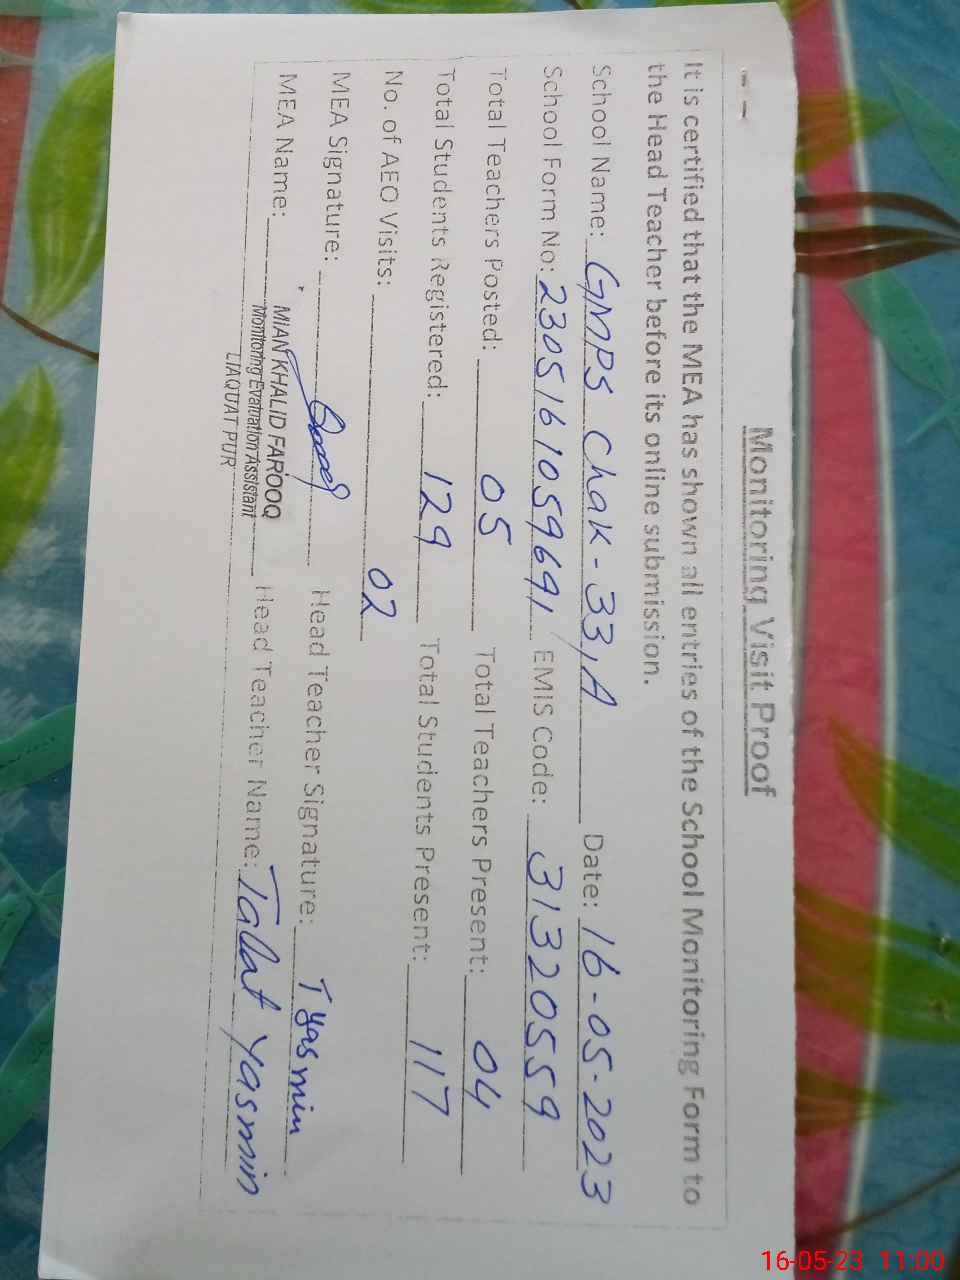 Monitoring Visit Proof
It is certified that the MEA has shown all entries of the School Monitoring Form to
the Head Teacher before its online submission.
School Name: GMPS Chak-33/A Date: 16-05-2023
School Form No: 2305161059691 EMIS Code: 31320559
Total Teachers Posted: 05 Total Teachers Present: 04
Total Students Registered: 129 Total Students Present: 117
No. of AEO Visits: 02
MEA Signature: Head Teacher Signature: Tyasmin
MEA Name: MIAN KHALID FAROOQ Head Teacher Name: Tallat Yasmin
Monitoring Evaluation Assistant
LIAQUAT PUR
16-05-23 11:00